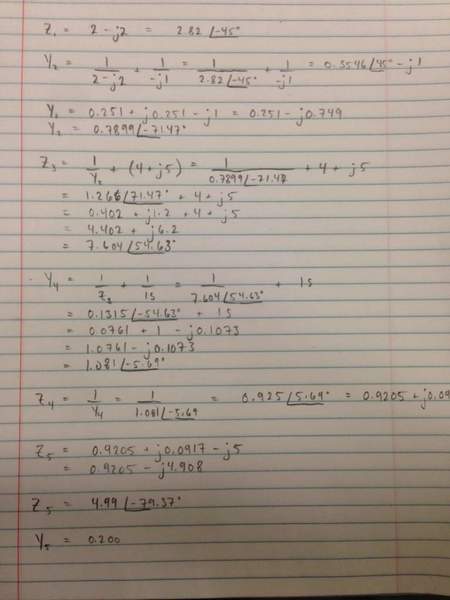 Z₁ = 2 - j2 = 2.82 ∠-45°
Y₂ = 1/(2-j2) + 1/(-j1) = 1/(2.82∠-45°) + 1/(-j1) = 0.3546∠45° - j1
Y₂ = 0.251 + j0.251 - j1 = 0.251 - j0.749
Y₂ = 0.7899∠-71.47°
Z₃ = 1/Y₂ + (4+j5) = 1/(0.7899∠-71.47) + 4 + j5
= 1.266∠71.47° + 4 + j5
= 0.402 + j1.2 + 4 + j5
= 4.402 + j6.2
= 7.604∠54.63°
Y₄ = 1/Z₃ + 1/1S = 1/(7.604∠54.63°) + 1S
= 0.1315∠-54.63° + 1S
= 0.0761 + 1 - j0.1073
= 1.0761 - j0.1073
= 1.081∠-5.69°
Z₄ = 1/Y₄ = 1/(1.081∠-5.69) = 0.925∠5.69° = 0.9205 + j0.09
Z₅ = 0.9205 + j0.0917 - j5
= 0.9205 - j4.908
Z₅ = 4.99∠-79.37°
Y₅ = 0.200